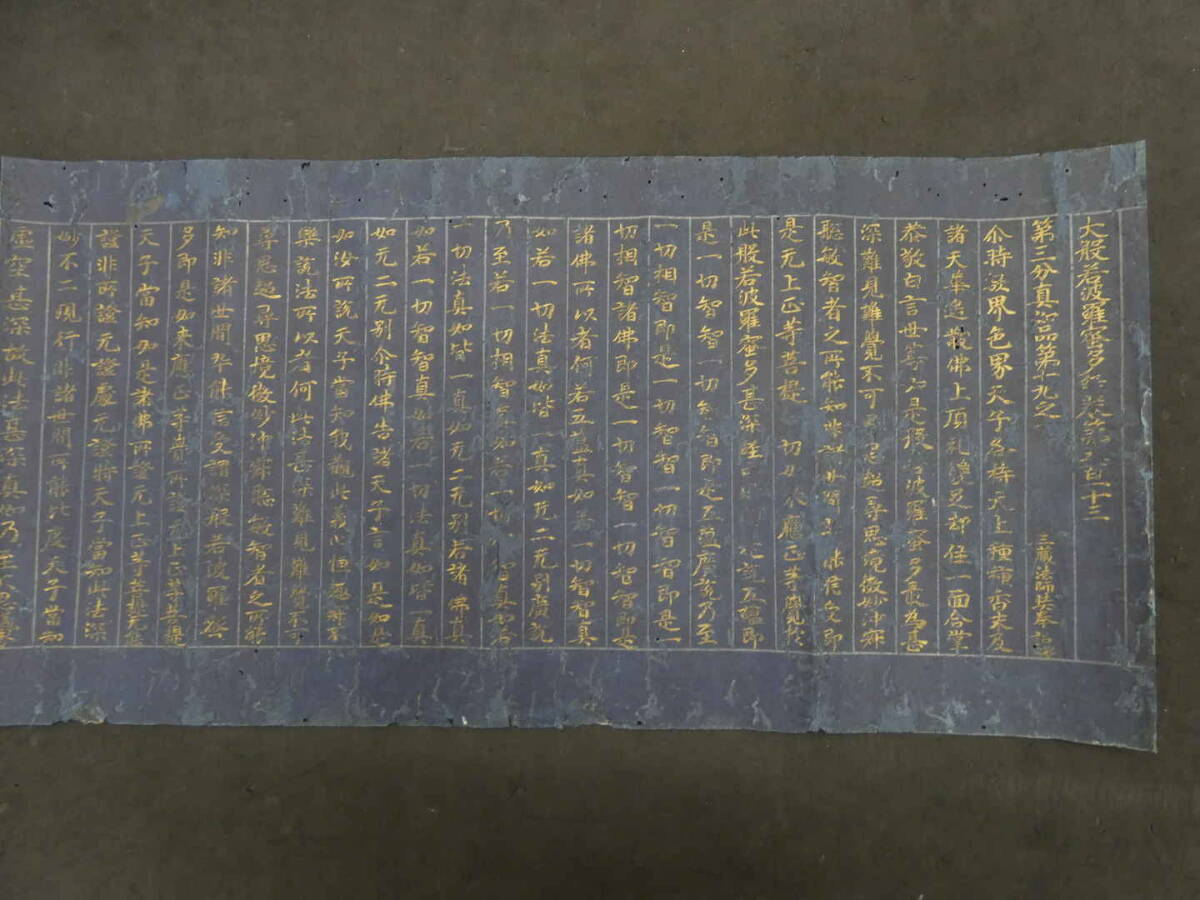 大般若波羅蜜多經卷第五百一十三
第三分真如品第十九之
三藏法師玄奘奉詔譯
尒時欲界色界天子各持天上種種香末及
諸天華遥散佛上頂礼雙足却住一面合掌
恭敬白言世尊如是般若波羅蜜多最為甚
深難見難覺不可尋思超尋思境微妙沖寂
聡敏智者之所能知非諸世間 能信受即
是无上正等菩提一切如来應正等覺於
此般若波羅蜜多甚深經中 說五蘊即
是一切智智一切智智即是五蘊廣說乃至
一切相智即是一切智智一切智智即是一
切相智諸佛即是一切智智一切智智即是
諸佛所以者何若五蘊真如若一切智智真
如若一切法真如皆一真如无二无別廣說
乃至若一切相智真如若一切智智真如若
一切法真如皆一真如无二无別若諸佛真
如若一切智智真如若一切法真如皆一真
如无二无別尒時佛告諸天子言如是如是
如汝所說天子當知我觀此義心恒趣寂不
樂說法所以者何此法甚深難見難覺不可
尋思超尋思境微妙沖寂聡敏智者之所能
知非諸世間卒能信受謂深般若波羅蜜
多即是如来應正等覺所證无上正等菩提
天子當知如是諸佛所證无上正等菩提无能
證非所證无證處无證時天子當知此法深
妙不二現行非諸世間所能比度天子當知
虛空甚深故此法甚深真如乃至不思議